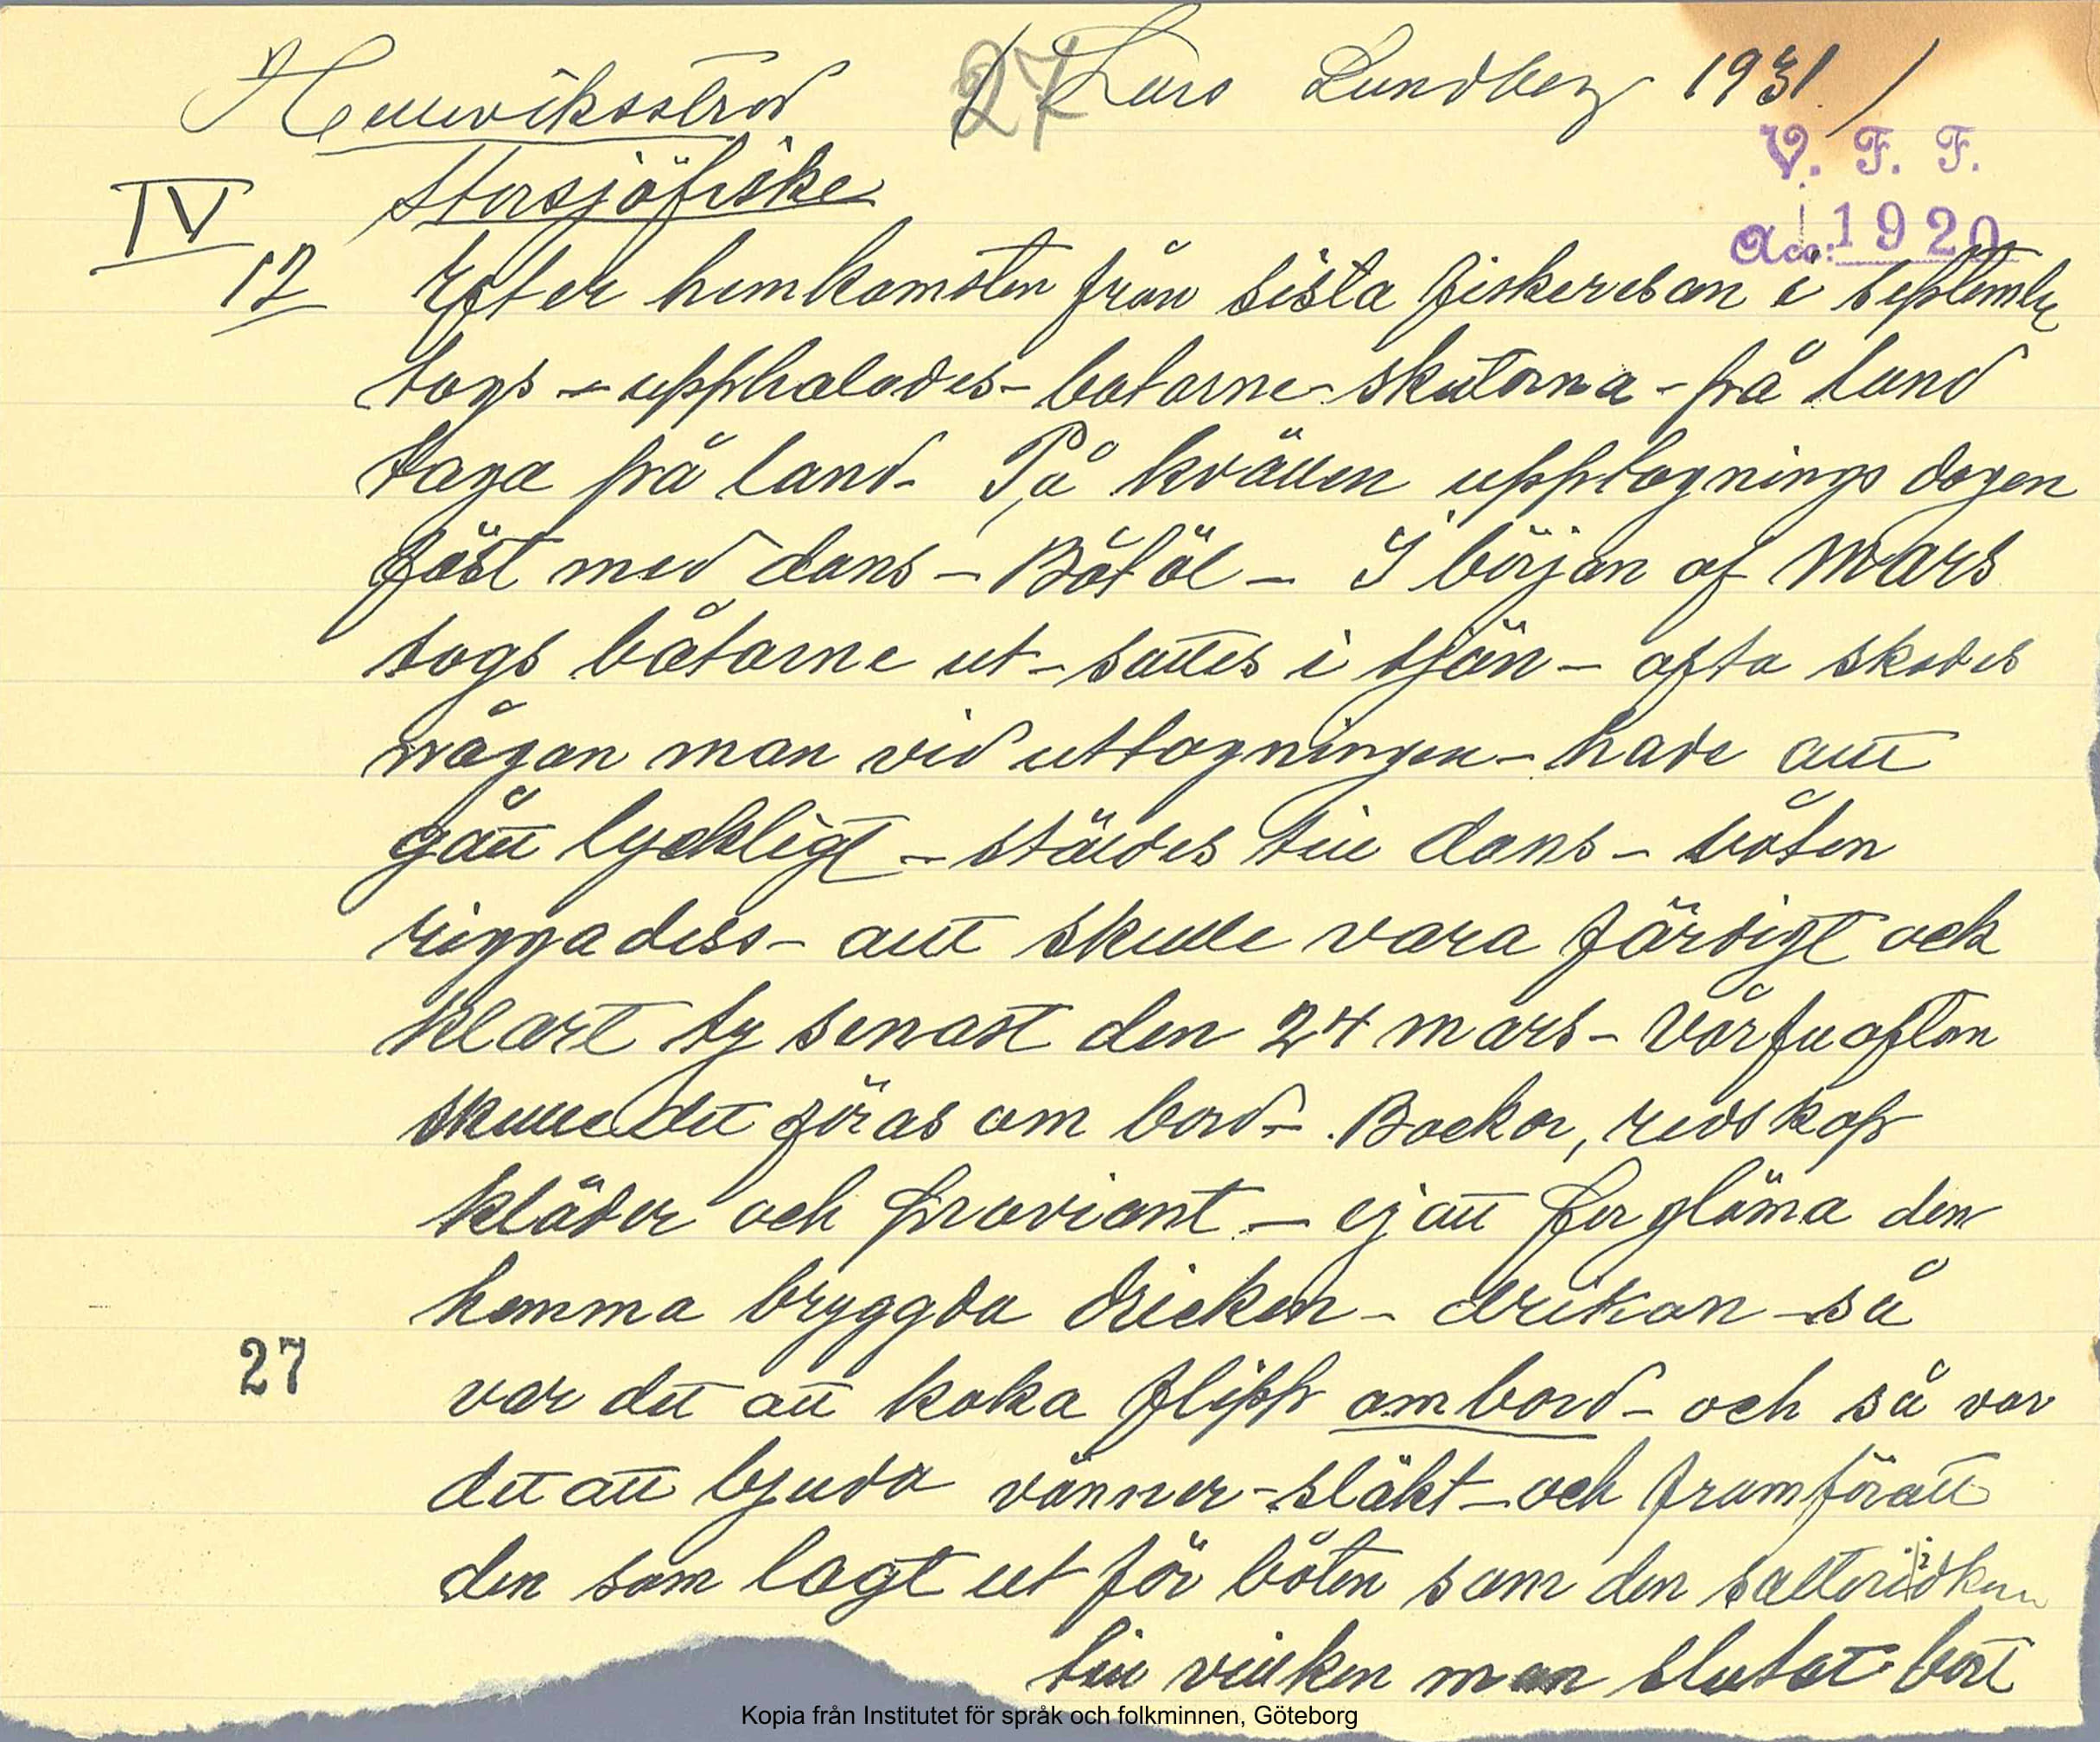 Hellwiksstrand 27 (Lars Lundberg 1931.)
V. F. F.
IV Storsjöfiske
Acc: 1920
12 Efter hemkomsten från sista fiskeresan i septembr
togs – upphalades – båtarne – skutorna – på land
taga på land – På kvällen upptagnings dagen
fäst med dans – Båtöl – I början af Mars
togs båtarne ut – sattes i sjön – ofta skades
någon man vid uttagningen – hade allt
gått lyckligt – stäldes till dans – båten
riggades – allt skulle vara färdigt och
klart ty senast den 24 mars – Vårfruafton
skulle det göras om bord – Backor, redskap
kläder och proviant – ej att förglöma den
hemma bryggda dricken – drikan – så
var det att koka flipp ombord – och så var
det att bjuda vänner – släkt – och framför allt
den som lagt ut för båten som den
27
till vilken man slutat bort
Kopia från Institutet för språk och folkminnen, Göteborg